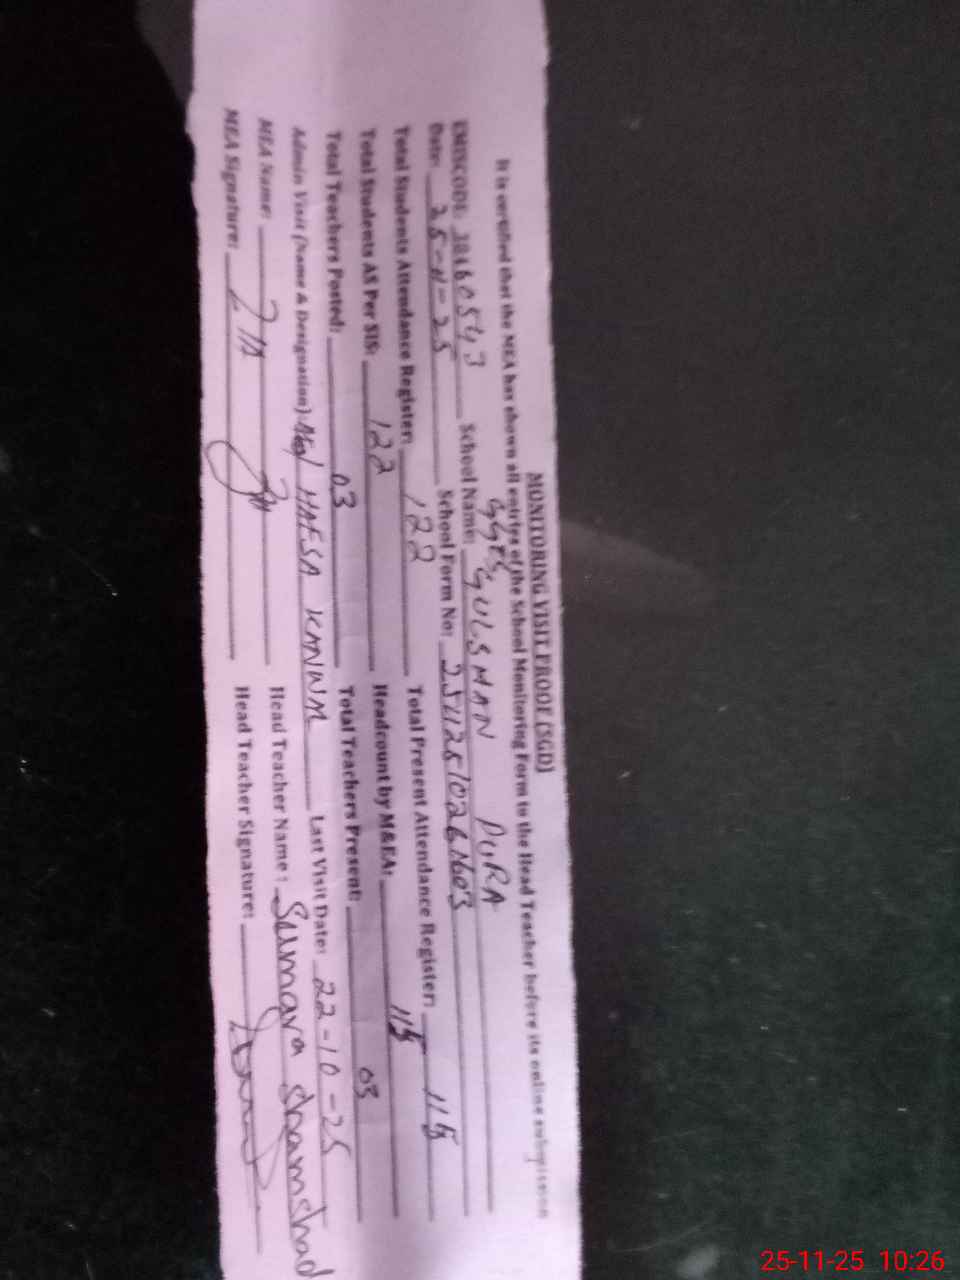 MONITORING VISIT PROOF (SGD)
It is certified that the MEA has shown all entries of the School Monitoring Form to the Head Teacher before its online submission
EMISCODE: 38460543 School Name: GGES GULSHAN PURA
Date: 25-11-25 School Form No:
Total Students Attendance Register: 122 Total Present Attendance Register: 115
Total Students AS Per SIS: 122 Headcount by M&EA: 115
Total Teachers Posted: 03 Total Teachers Present: 03
Admin Visit (Name & Designation): HAFSA KANWAL Last Visit Date: 22-10-25
MEA Name: Head Teacher Name: Samara Shamshad
MEA Signature: Head Teacher Signature:
25-11-25 10:26